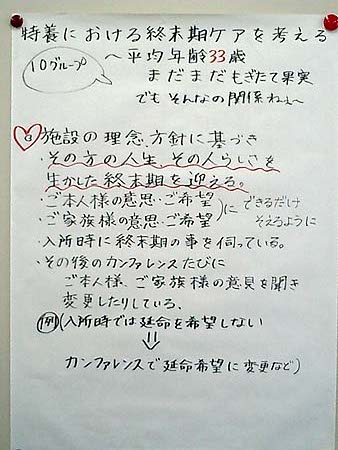 特養における終末期ケアを考える
10グループ
〜平均年齢33歳
まだまだもぎたて果実
でもそんなの関係ねぇ〜
施設の理念、方針に基づき
・その方の人生、その人らしさを
生かした終末期を迎える。
・ご本人様の意思・ご希望
・ご家族様の意思・ご希望
にできるだけ
そえるように
・入所時に終末期の事を伺っている。
・その後のカンファレンスたびに
ご本人様、ご家族様の意見を聞き
変更したりしている。
例(入所時では延命を希望しない
⇓
カンファレンスで延命希望に変更など)